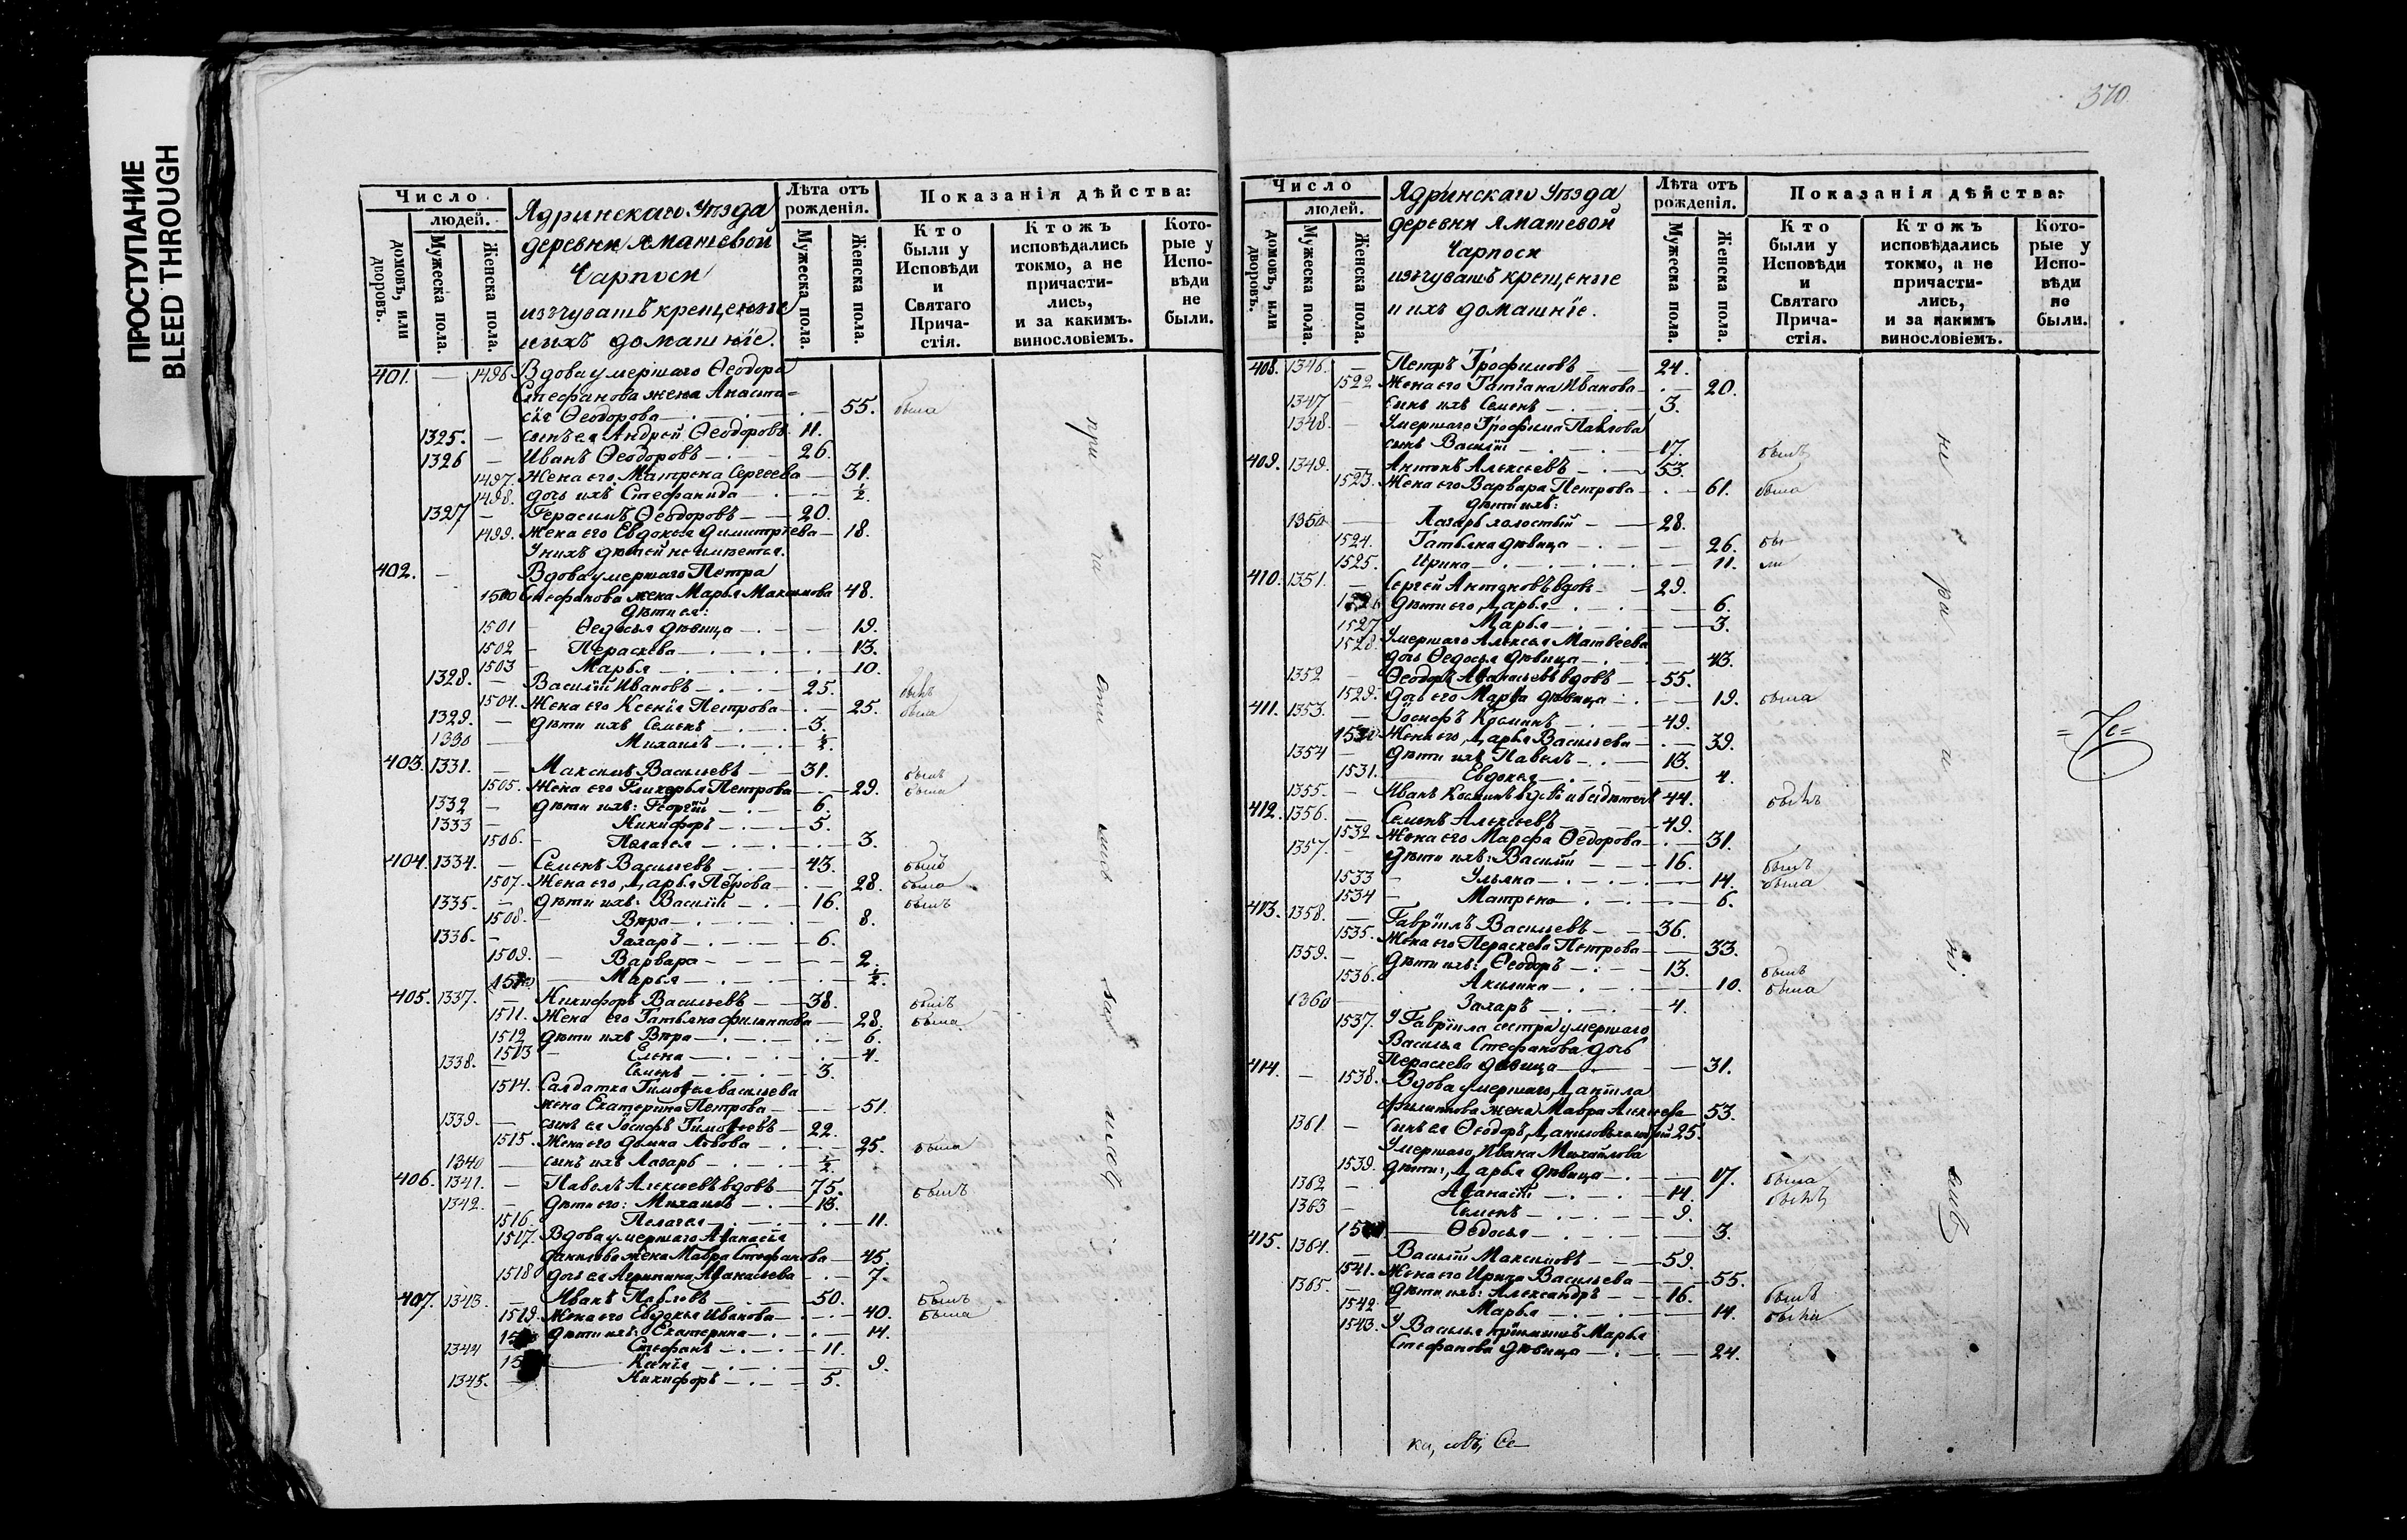 ПРОСТУПАНИЕ
BLEED THROUGH
370.
Число
людей.
домовъ, или дворовъ.
Мужеска пола.
Женска пола.
Ядринскаго Уѣзда
деревни Яматевой
Чарпоси
изъ чувашъ крещеные
и ихъ домашнїе.
Лѣта отъ рожденія.
Мужеска пола.
Женска пола.
Показанія дѣйства:
Кто были у Исповѣди и Святаго Причастія.
Ктожъ исповѣдались токмо, а не причастились, и за какимъ винословіемъ.
Которые у Исповѣди не были.
401. — 1496. Вдова умершаго Ѳеодора
Стефанова жена Анаста-
сїя Ѳеодорова 55. была
1325. — сынъ ея Андрей Ѳеодоровъ 11.
1326 — Иванъ Ѳеодоровъ 26.
1497. Жена его Матрена Сергеева 31.
1498. дочь ихъ Стефанида ½.
1327 — Герасимъ Ѳеодоровъ 20.
1499. Жена его Евдокея Димитрїева 18.
У нихъ дѣтей не имѣется.
402. — Вдова умершаго Петра
1500 Стефанова жена Марья Максимова 48.
дѣти ея:
1501 Ѳедосья дѣвица 19.
1502 Пераскева 13.
1503 Марья 10.
1328. — Василїй Ивановъ 25. былъ
1504. Жена его Ксенїя Петрова 25. была
1329. — дѣти ихъ Семенъ 3.
1330 — Михаилъ ½.
403. 1331. — Максимъ Васильевъ 31. былъ
1505. Жена его Гликерья Петрова 29. была
1332 — дѣти ихъ: Георгїй 6.
1333 — Никифоръ 5.
1506. Пелагея 3.
404. 1334. — Семенъ Васильевъ 43. былъ
1507. Жена его Дарья Петрова 28. была
1335. — дѣти ихъ: Василїй 16. былъ
1508. — Вѣра 8.
1336. — Захаръ 6.
1509. — Варвара 2.
1510 — Марья ½.
405. 1337. — Никифоръ Васильевъ 38. былъ
1511. Жена его Татьяна Филиппова 28. была
1512 дѣти ихъ Вѣра 6.
1513 — Елена 4.
1338. — Семенъ 3.
1514. Салдатка Тимоѳея Васильева
жена Екатерина Петрова 51.
1339. — сынъ ея Їосифъ Тимоѳеевъ 22.
1515. Жена его Домна Львова 25. была
1340 — сынъ ихъ Лазарь ½.
406. 1341. — Павелъ Алексѣевъ вдовъ 75. былъ
1342. — дѣти его: Михаилъ 13.
1516. Пелагея 11.
1517. Вдова умершаго Аѳанасїя
Данилова жена Мавра Стефанова 45.
1518 дочь ея Агрипина Аѳанасьева 7.
407. 1343. — Иванъ Павловъ 50. былъ
1519. Жена его Евдокья Иванова 40. была
дѣти ихъ: Екатерина 14.
1344 Стефанъ 11.
Ксенїя 9.
1345. Никифоръ 5.
Число
людей.
домовъ, или дворовъ.
Мужеска пола.
Женска пола.
Ядринскаго Уѣзда
деревни Яматевой
Чарпоси
изъ чувашъ крещеные
и ихъ домашнїе.
Лѣта отъ рожденія.
Мужеска пола.
Женска пола.
Показанія дѣйства:
Кто были у Исповѣди и Святаго Причастія.
Ктожъ исповѣдались токмо, а не причастились, и за какимъ винословіемъ.
Которые у Исповѣди не были.
408. 1346. — Петръ Трофимовъ 24.
1522 Жена его Татїана Иванова 20.
1347 сынъ ихъ Семенъ 3.
1348. — Умершаго Трофима Павлова
сынъ Василїй 17. былъ
409. 1349. — Антонъ Алексѣевъ 53.
1523. Жена его Варвара Петрова 61. была
дѣти ихъ:
1350 — Лазарь холостый 28.
1524. Татьяна дѣвица 26. бы-
1525. Ирина 11. ли
410. 1351. — Сергей Антоновъ вдовъ 29.
1526 дѣти его Дарья 6.
1527 Марья 3.
1528. Умершаго Алексея Матвѣева
дочь Ѳедосья дѣвица 43.
1352 — Ѳеодоръ Аѳанасьевъ вдовъ 55.
1529. дочь его Марѳа дѣвица 19. была
411. 1353. — Їосифъ Козминъ 49.
1530 Жена его Дарья Васильева 39.
1354 — дѣти ихъ Павелъ 13.
1531. Евдокея 4.
1355. — Иванъ Козминъ вдовъ и бездѣтенъ 44. былъ
412. 1356. — Семенъ Алексѣевъ 49.
1532 Жена его Марѳа Ѳедорова 31.
1357. — дѣти ихъ: Василїй 16. былъ
1533 — Ульяна 14. была
1534 — Матрена 6.
413. 1358. — Гаврїилъ Васильевъ 36.
1535. Жена его Пераскева Петрова 33.
1359. — дѣти ихъ: Ѳеодоръ 13. былъ
1536. Акилина 10. была
1360 Захаръ 4.
1537. У Гаврїила сестра умершаго
Василья Стефанова дочь
Пераскева дѣвица 31.
414. — 1538. Вдова умершаго Данїила
Филиппова жена Мавра Алексѣева 53.
1361 — сынъ ея Ѳеодоръ Даниловъ холостый 25.
Умершаго Ивана Михайлова
1539. дѣти: Дарья дѣвица 17. была
1362 — Аѳанасїй 14. былъ
1363 — Семенъ 9.
Ѳедосья 3.
415. 1364. — Василїй Максимовъ 59.
1541. Жена его Ирина Васильева 55.
1365. — дѣти ихъ: Александръ 16. былъ
1542 — Марья 14. была
1543. У Василья прїемышъ Марья
Стефанова дѣвица 24.